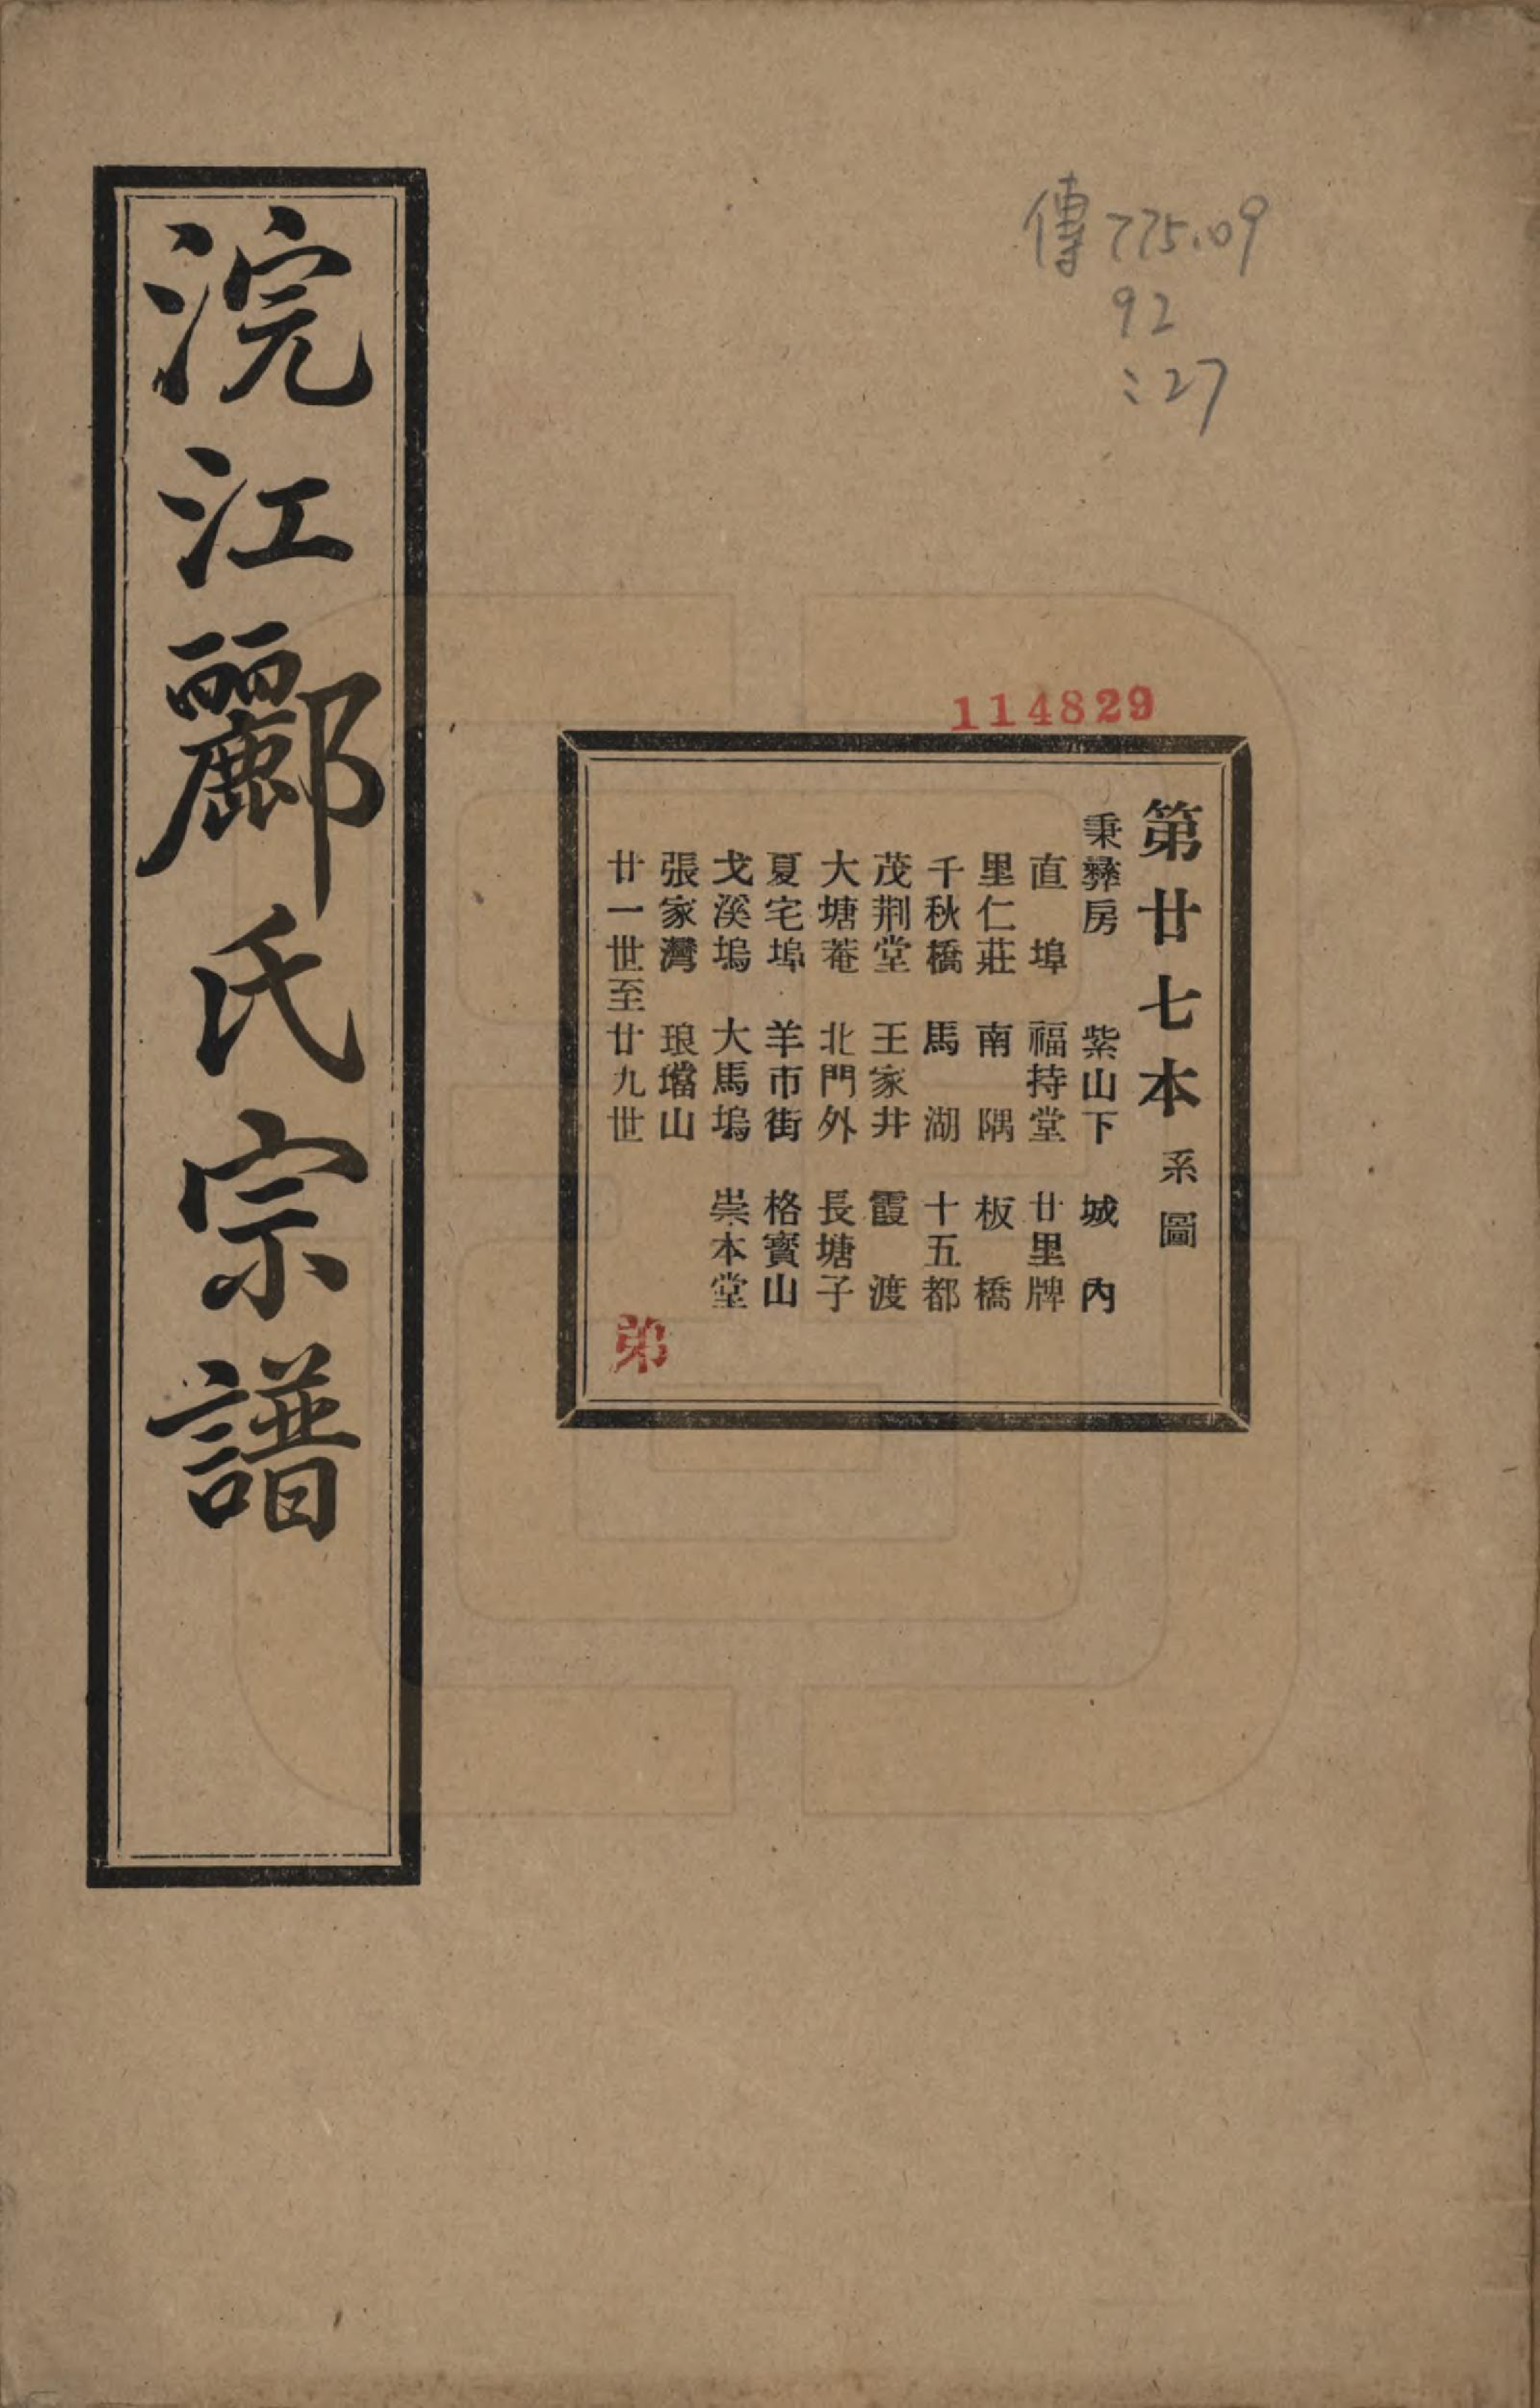 傳775.09
92
:27
114829
第廿七本 系圖
秉彝房 紫山下 城內
直埠 福持堂 廿里牌
里仁莊 南隅 板橋
千秋橋 馬湖 十五都
茂荆堂 王家井 霞渡
大塘菴 北門外 長塘子
夏宅埠 羊市街 格寳山
戈溪塢 大馬塢 崇本堂
張家灣 琅璫山
廿一世至廿九世
弟
浣江酈氏宗譜